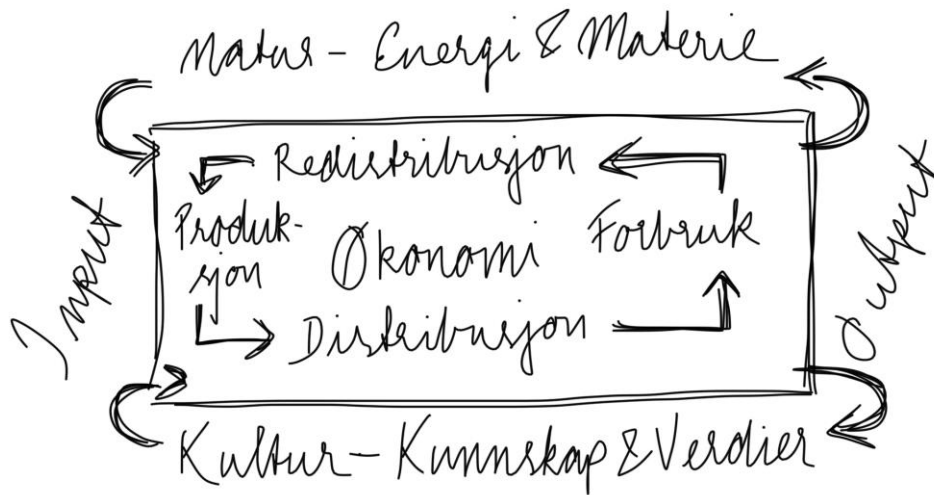 Natur - Energi & Materie
Redistribusjon
Produk-
sjon
Økonomi
Forbruk
Distribusjon
Input
Output
Kultur - Kunnskap & Verdier